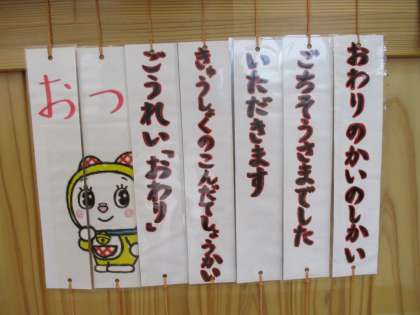 おわりのかいのしかい
ごちそうさまでした
いただきます
きゅうしょくのこんだてしょうかい
ごうれい「おわり」
おつ